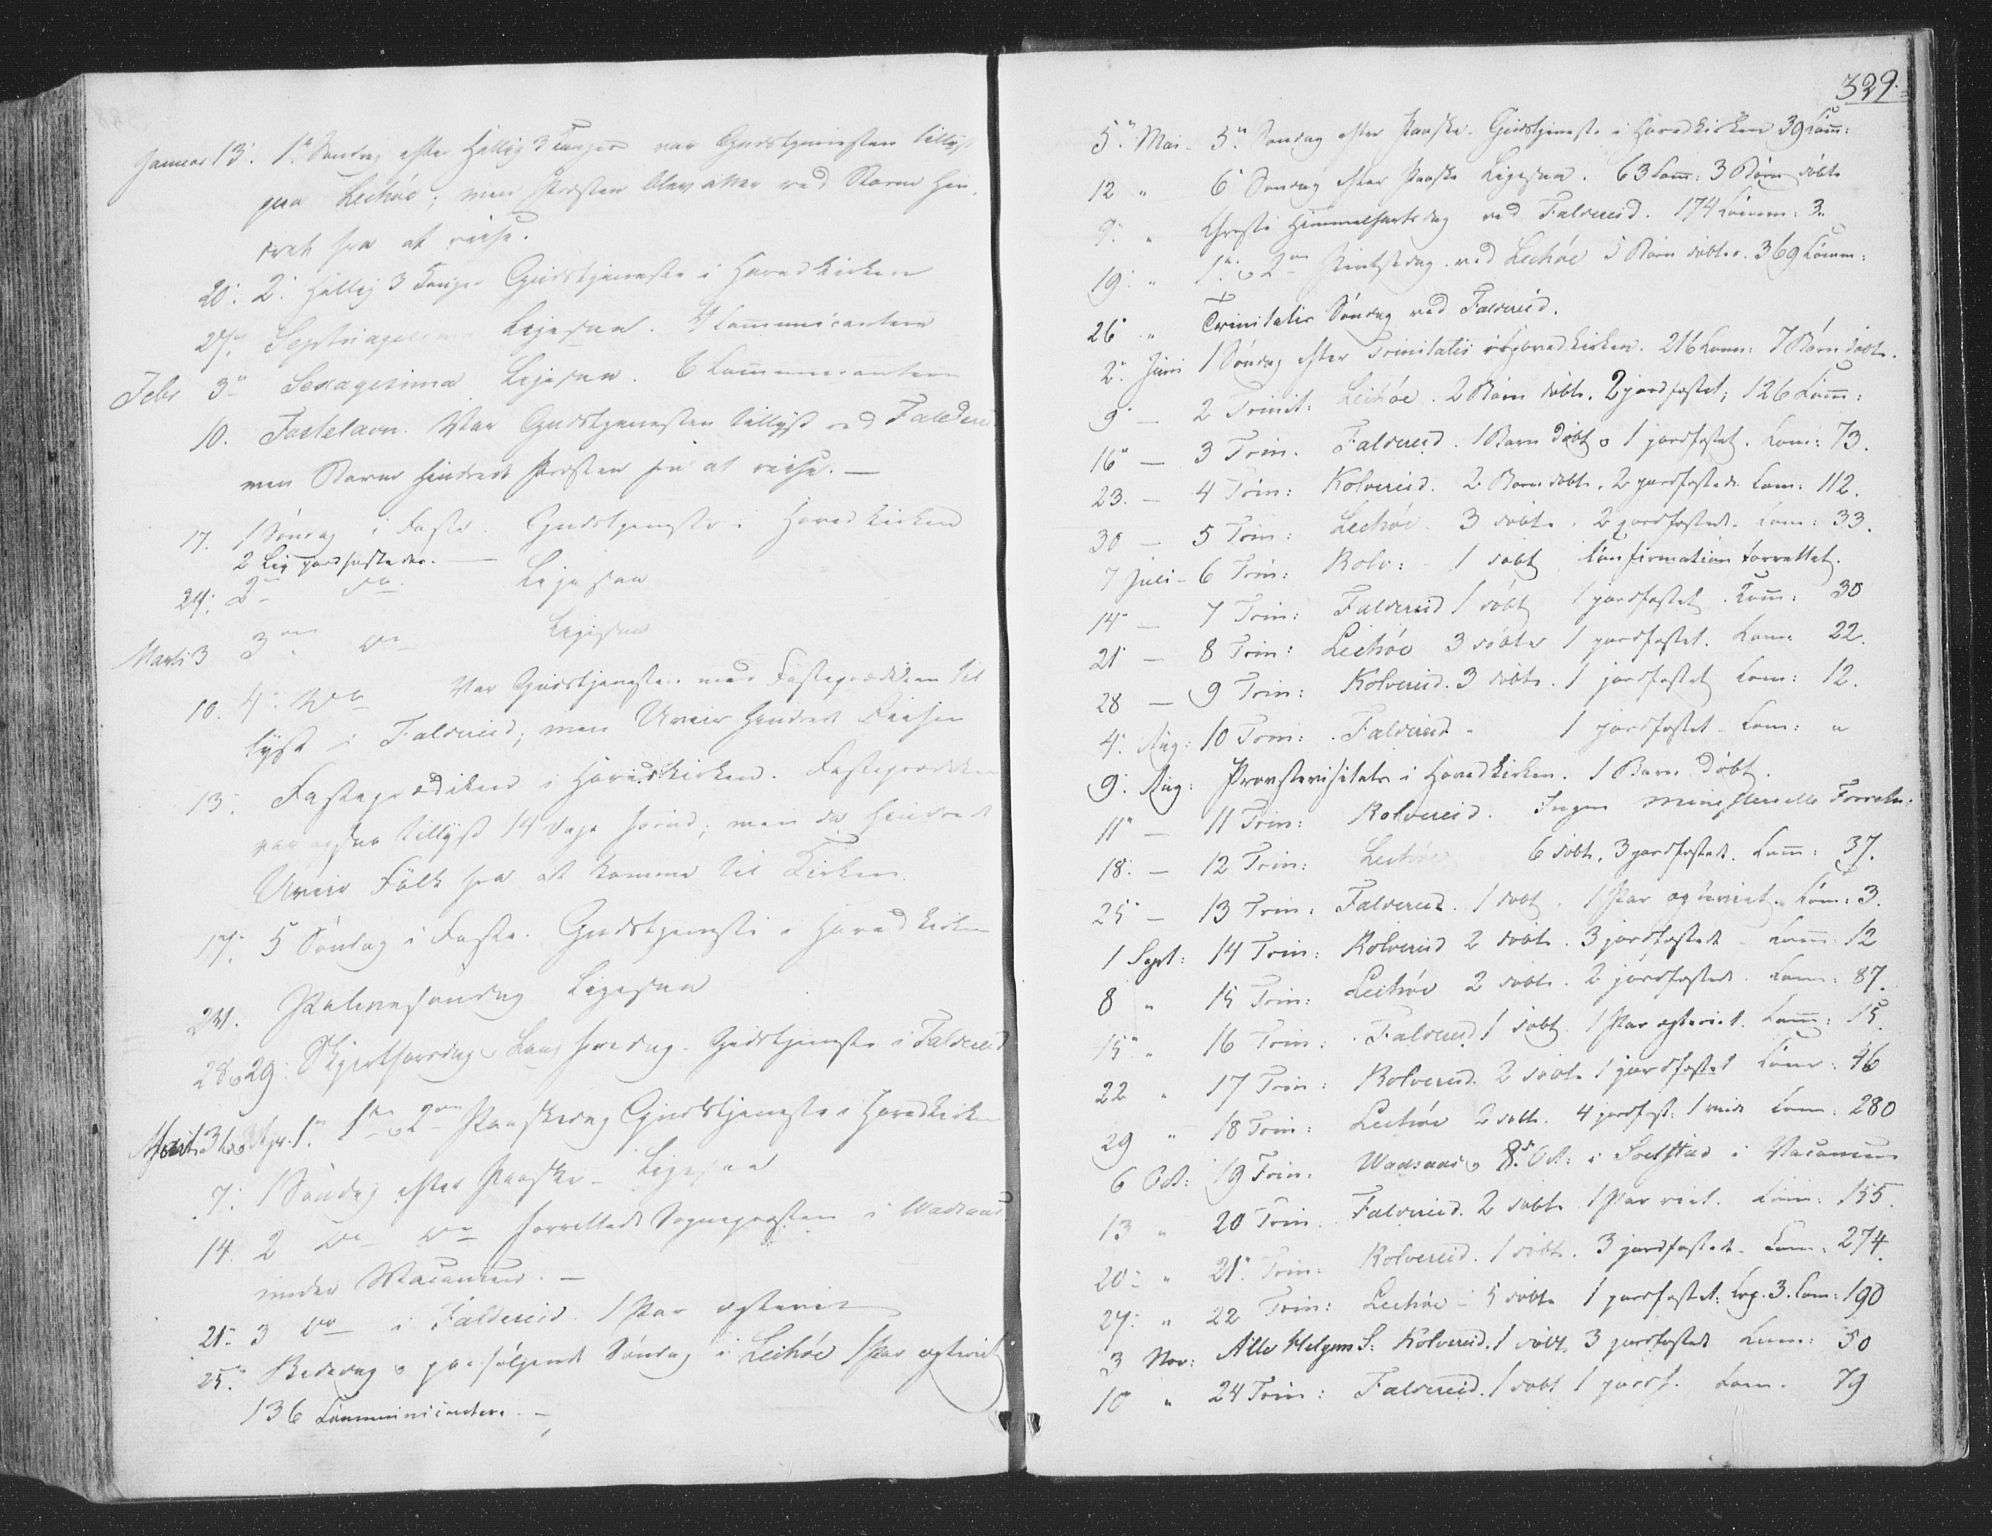 Januar 13. 1ste Søndag efter Hellig 3 Konger var Gudstjenesten tillyst
paa Lechøe; men Præsten blev atter ved Storm hin-
dret fra at reise.
20. 2. Hellig 3 Konger Gudstjeneste i Hovedkirken
27. Septuagesima Ligesaa. 4 Communicantere
Febr 3. Sexagesima Ligesaa. 6 Communicantere
10. Fastelavn. Var Gudstjenesten tillyst ved Foldereid
men Storm hindrede Præsten fra at reise. —
17. 1 Søndag i Faste. Gudstjeneste i Hovedkirken
2 Lig jordfæstede. —
24. 2 do Ligesaa
Marti 3 3 do Ligesaa
10. 4. do Var Gudstjeneste med Fasteprædiken til-
lyst i Foldereid; men Uveir hindrede Reisen
13. Fasteprædiken i Hovedkirken. Fasteprædiken
var ogsaa tillyst 14 Dage forud; men da hindrede
Uveir Folk fra at komme til Kirken.
17. 5 Søndag i Faste. Gudstjeneste i Hovedkirken
24. Palmesøndag Ligesaa
28 & 29. Skjertorsdag & Langfredag. Gudstjeneste i Foldereid
Marti 31 & Apr. 1. 1ste & 2den Paaskedag Gudstjeneste i Hovedkirken
7. 1 Søndag efter Paaske – Ligesaa
14. 2 do do forrettede Sognepræsten i Wadsaas
under Vacancen. —
21. 3 do i Foldereid. 1 Par ægteviet
25. Bededag & paafølgende Søndag i Lechøe 1 Par ægteviet
136 Communicantere. —
329.
5. Mai – 5. Søndag efter Paaske. Gudstjeneste i Hovedkirken 39 Comm:
12 " 6 Søndag efter Paaske Ligesaa. 63 Com: 3 Børn døbte
9. " Christi Himmelfartsdag ved Foldereid. 174 Comm: 3.
19. " 1. & 2den Pintsedag ved Lechøe 5 Børn døbte. 369 Comm:
26 " Trinitatis Søndag ved Foldereid.
2. Juni 1 Søndag efter Trinitatis i Hovedkirken. 216 Comm: 7 Børn døbte.
9 — 2 Trinit: Lechøe. 2 Børn døbte. 2 jordfæstet; 126 Comm:
16 — 3 Trin. Foldereid. 1 Barn døbt & 1 jordfæstet. Com: 73.
23. — 4 Trin: Kolvereid. 2 Børn døbte. 2 jordfæstede. Com: 112.
30 — 5 Trin: Lechøe. 3 døbte. 2 jordfæstede. Com: 33.
7 Juli – 6 Trin: Kolv: – 1 døbt Confirmation forrettet.
14 — 7 Trin: Foldereid 1 døbt 1 jordfæstet. Com: 30
21 — 8 Trin: Lechøe 3 døbte 1 jordfæstet. Com: 22.
28 — 9 Trin: Kolvereid. 3 døbte. 1 jordfæstet Com: 12.
4. Aug: 10 Trin: Foldereid – 1 jordfæstet – Com: "
9. Aug: Provstevisitats i Hovedkirken. 1 Barn døbt.
11 — 11 Trin: Kolvereid. Ingen ministerielle Forretn:
18. — 12 Trin: Lechøe 6 døbte, 3 jordfæstede. Com: 37.
25 — 13 Trin: Foldereid. 1 døbt. 1 Par ægteviet. Com: 3.
1 Sept: 14 Trin: Kolvereid 2 døbte. 3 jordfæstede – Com: 12
8 " 15 Trin: Lechøe 2 døbte. 2 jordfæstede. Com: 87.
15 " 16 Trin: Foldereid 1 døbt. 1 Par ægteviet. Com: 15.
22 " 17 Trin: Kolvereid. 2 døbte 1 jordfæstet Com: 46
29 " 18 Trin: Lechøe 2 døbte. 4 jordfæst: 1 viede Com: 280
6 Oct: 19 Trin. Wadsaas & 8. Oct: i Vacancen
13 " 20 Trin: Foldereid. 2 døbte 1 Par viet. Com: 155.
20 " 21. Trin: Kolvereid. 1 døbt. 3 jordfæstede. Com: 274.
27. " 22 Trin: Lechøe – 5 døbte 1 jordfæstet. Cop. 3. Com: 190
3 Nov: Alle Helgens S: Kolvereid. 1 døbt. 3 jordfæstede Com: 50
10 " 24 Trin: Foldereid. 1 døbt 1 jordf. Com. 79